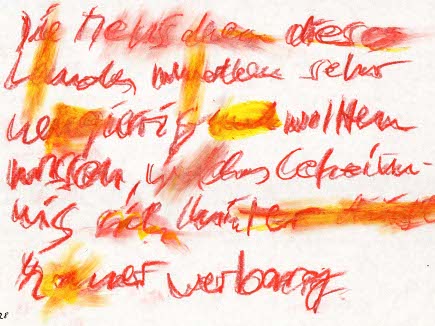 Die Menschen dieses
Landes wurden sehr
neugierig und wollten
wissen, Geheim-
nis sich hinter
verbarg